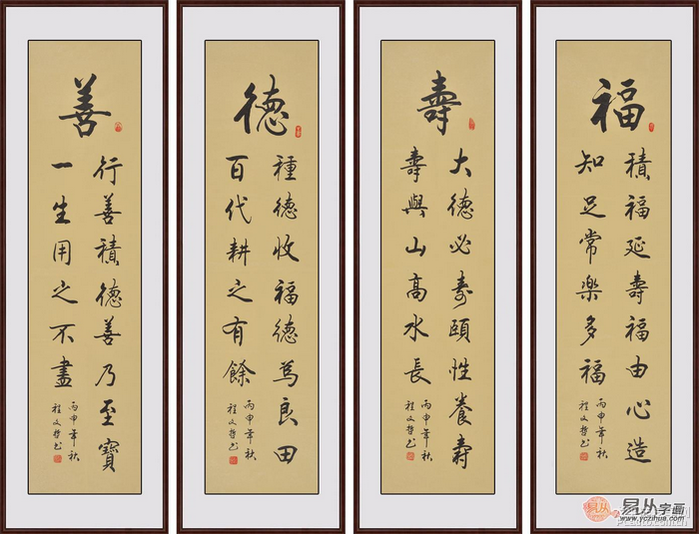 福
積福延壽福由心造
知足常樂多福
丙申年秋
程文哲书
壽
大德必寿頤性養壽
壽與山高水長
丙申年秋
程文哲书
德
種德收福德為良田
百代耕之有餘
丙申年秋
程文哲书
善
行善積德善乃至寶
一生用之不盡
丙申年秋
程文哲书
易从
易从字画
www.yczihua.com